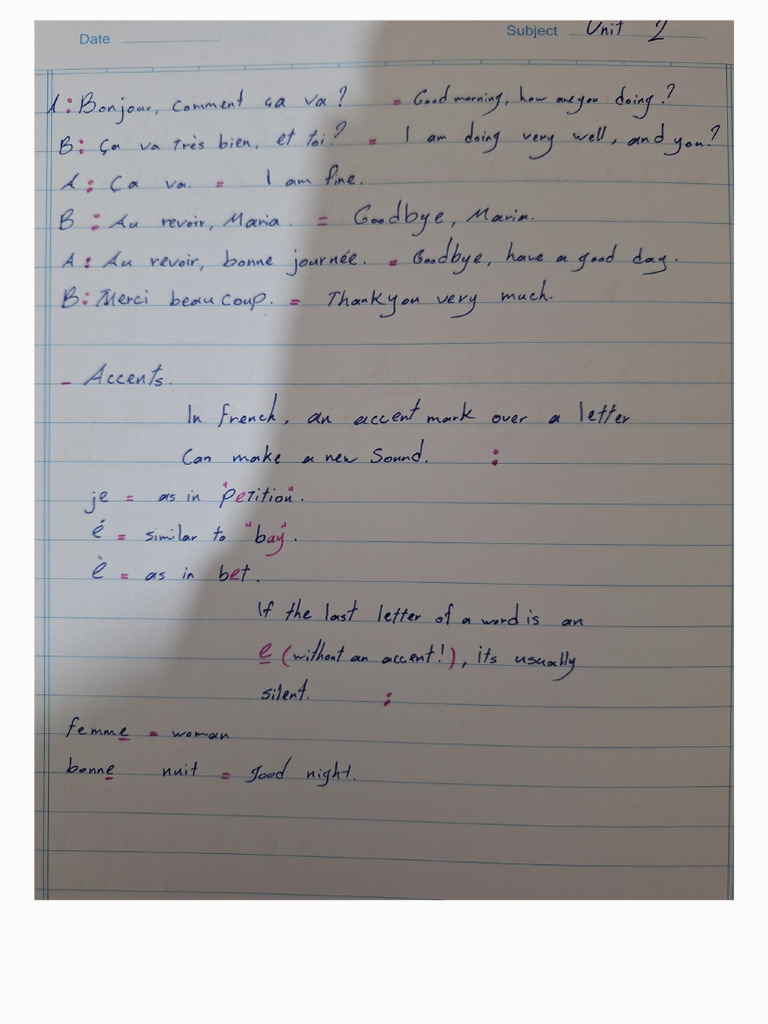 Date
Subject Unit 2
A: Bonjour, comment ça va? = Good morning, how are you doing?
B: Ça va très bien, et toi? = I am doing very well, and you?
A: Ça va. = I am fine.
B: Au revoir, Maria. = Goodbye, Maria.
A: Au revoir, bonne journée. = Goodbye, have a good day.
B: Merci beaucoup. = Thank you very much.
- Accents.
In french, an accent mark over a letter
Can make a new Sound. :
je = as in "petition".
é = similar to "bay".
è = as in bet.
If the last letter of a word is an
e (without an accent!), its usually
silent. :
femme = woman
bonne nuit = good night.